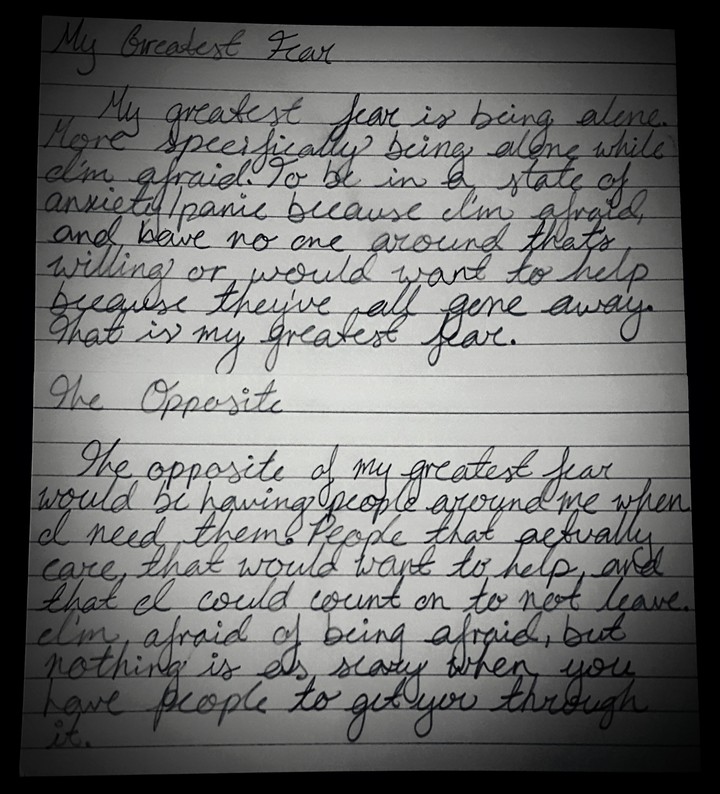 My Greatest Fear
My greatest fear is being alone.
More specifically being alone while
I'm afraid. To be in a state of
anxiety/panic because I'm afraid,
and have no one around thats
willing or would want to help
because they've all gone away.
That is my greatest fear.
The Opposite
The opposite of my greatest fear
would be having people around me when
I need them. People that actually
care, that would want to help, and
that I could count on to not leave.
I'm afraid of being afraid, but
nothing is as scary when you
have people to get you through
it.